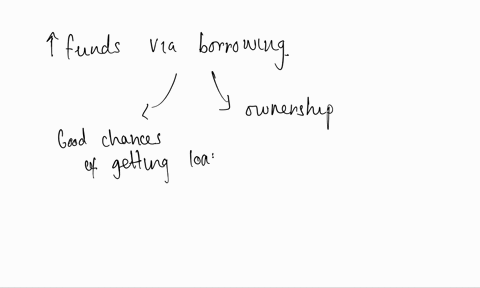 ↑ funds via borrowing.
ownership
Good chances
of getting loa